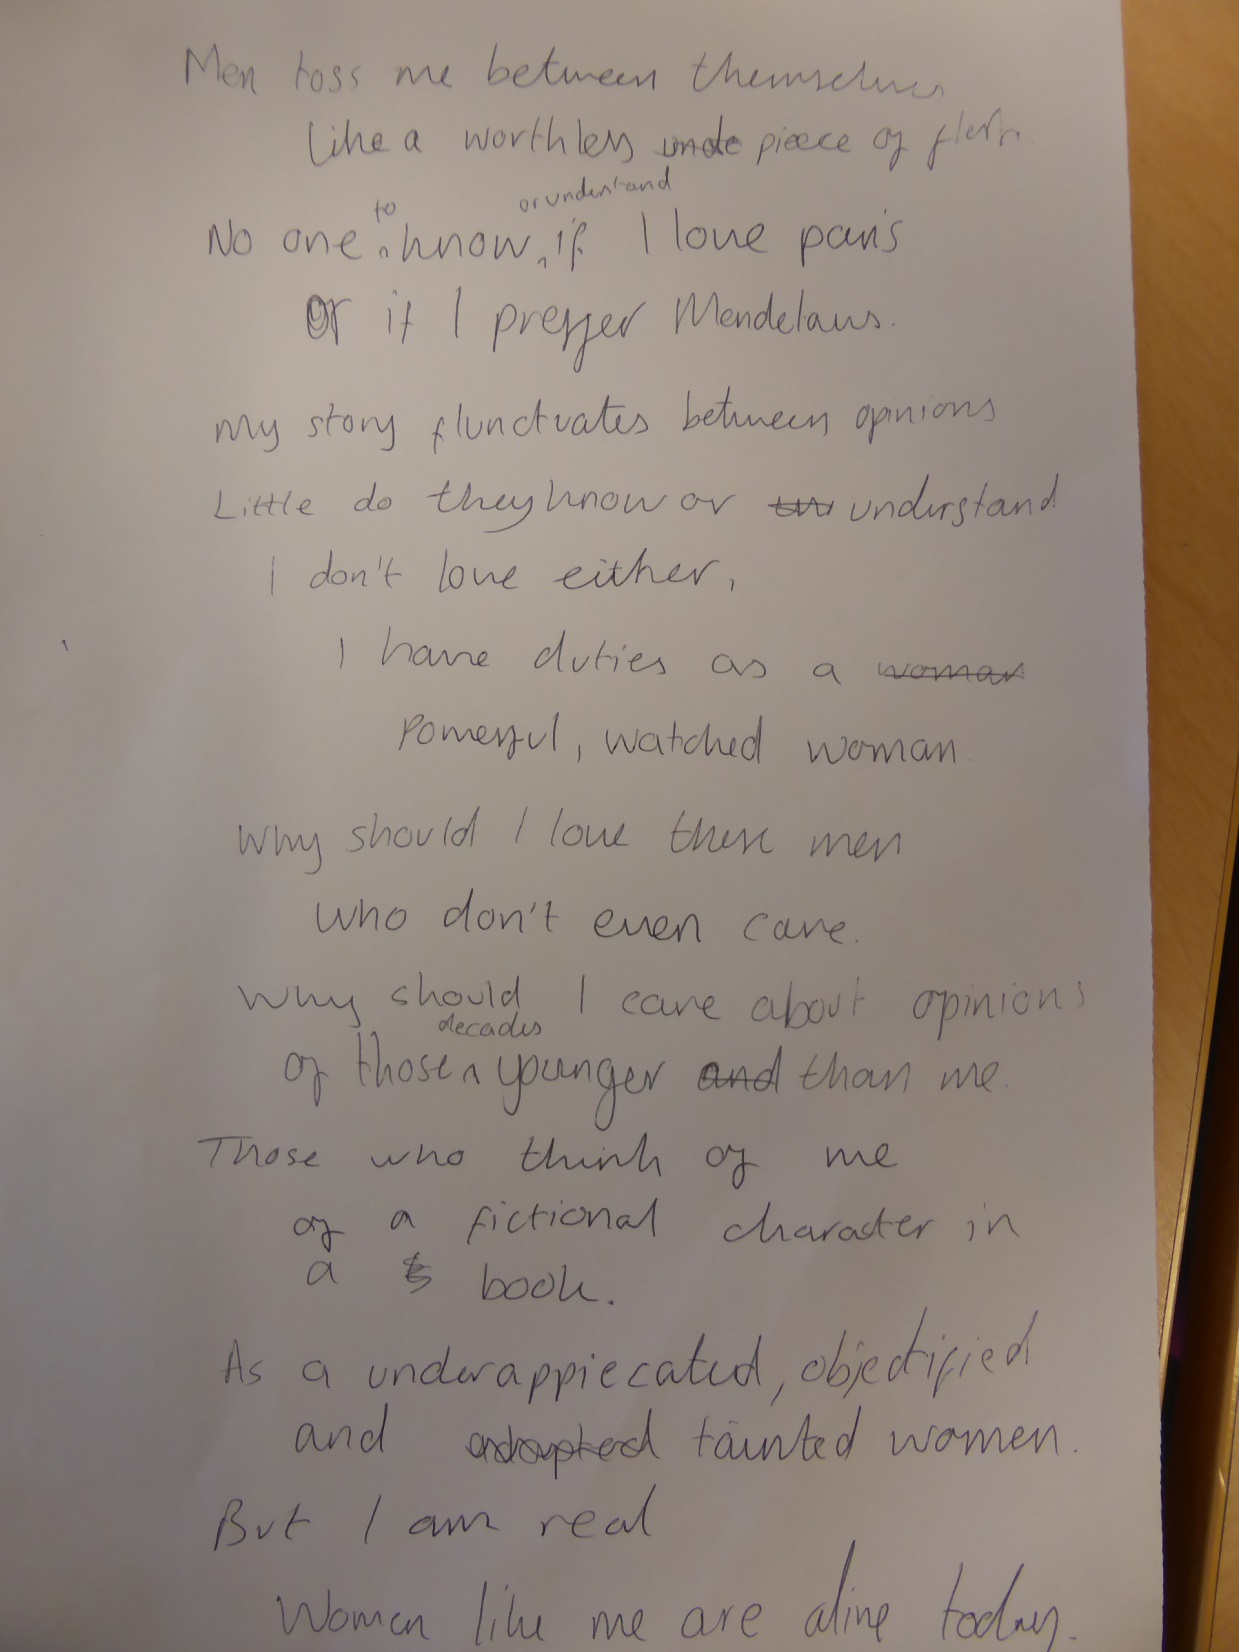 Men toss me between themselves
Like a worthless unde piece of flesh.
to or understand
No one know, if I love paris
Or if I preffer Mendelaus.
My story flunctuates between opinions
Little do they know or un understand
I don't love either,
I have duties as a woman
Powerful, watched woman
Why should I love these men
who don't even care.
Why should I care about opinions
decades
of those younger and than me.
Those who think of me
of a fictional character in
a book.
As a underappiecated, objectified
and adopted taunted women.
But I am real
Women like me are alive today.